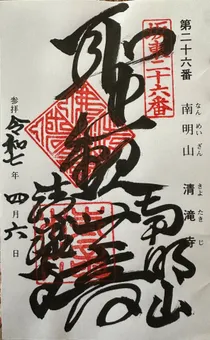 第二十六番
南明山 清滝寺
なんめいざん きよたきじ
坂東二十六番
聖観音
南明山
清滝寺
参拝 令和七年四月六日